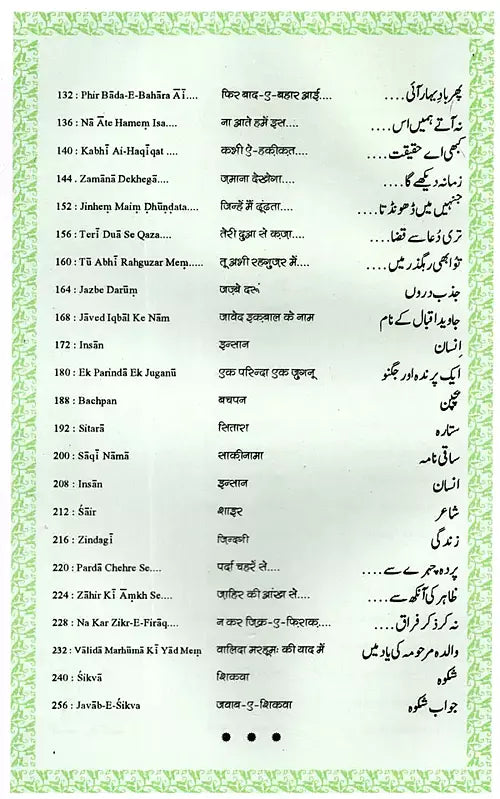 132 : Phir Bāda-E-Bahāra Āī.... फिर बाद-ए-बहार आई.... پھر بادِ بہار آئی....
136 : Nā Āte Hameṃ Isa.... ना आते हमें इस.... نہ آتے ہمیں اس....
140 : Kabhī Ai-Haqīqat .... कभी ऐ-हक़ीक़त.... کبھی اے حقیقت....
144 . Zamānā Dekhegā.... ज़माना देखेगा.... زمانہ دیکھے گا....
152 : Jinheṃ Maiṃ Ḍhūnḍata.... जिन्हें में ढूंढ़ता.... جنہیں میں ڈھونڈتا....
156 : Terī Duā Se Qaza.... तेरी दुआ से क़ज़ा.... تری دُعا سے قضا....
160 : Tū Abhī Rahguzar Meṃ..... तू अभी रहगुज़र में.... تُو ابھی رہگذر میں....
164 : Jazbe Darūṃ जज़्बे दरूं جذب دروں
168 : Jāved Iqbāl Ke Nām जावेद इक़बाल के नाम جاوید اقبال کے نام
172 : Insān इन्सान اِنسان
180 : Ek Parindā Ek Juganū एक परिन्दा एक जुगनू ایک پرندہ اور جگنو
188 : Bachpan बचपन بچپن
192 : Sitarā सितारा ستارہ
200 : Sāqī Nāmā साक़ीनामा ساقی نامہ
208 : Insān इन्सान انسان
212 : Śāir शाइर شاعر
216 : Zindagī ज़िन्दगी زندگی
220 : Pardā Chehre Se.... पर्दा चहरें से.... پردہ چہرے سے....
224 : Zāhir Kī Āṃkh Se.... ज़ाहिर की आंख से.... ظاہر کی آنکھ سے....
228 : Na Kar Zikr-E-Firāq.... न कर ज़िक्र-ए-फ़िराक़.... نہ کر ذکر فراق....
232 : Vālidā Marhūmā Kī Yād Meṃ वालिदा मरहूमः की याद में والدہ مرحومہ کی یاد میں
240 : Śikvā शिकवा شکوہ
256 : Javāb-E-Śikva जवाब-ए-शिकवा جواب شکوہ